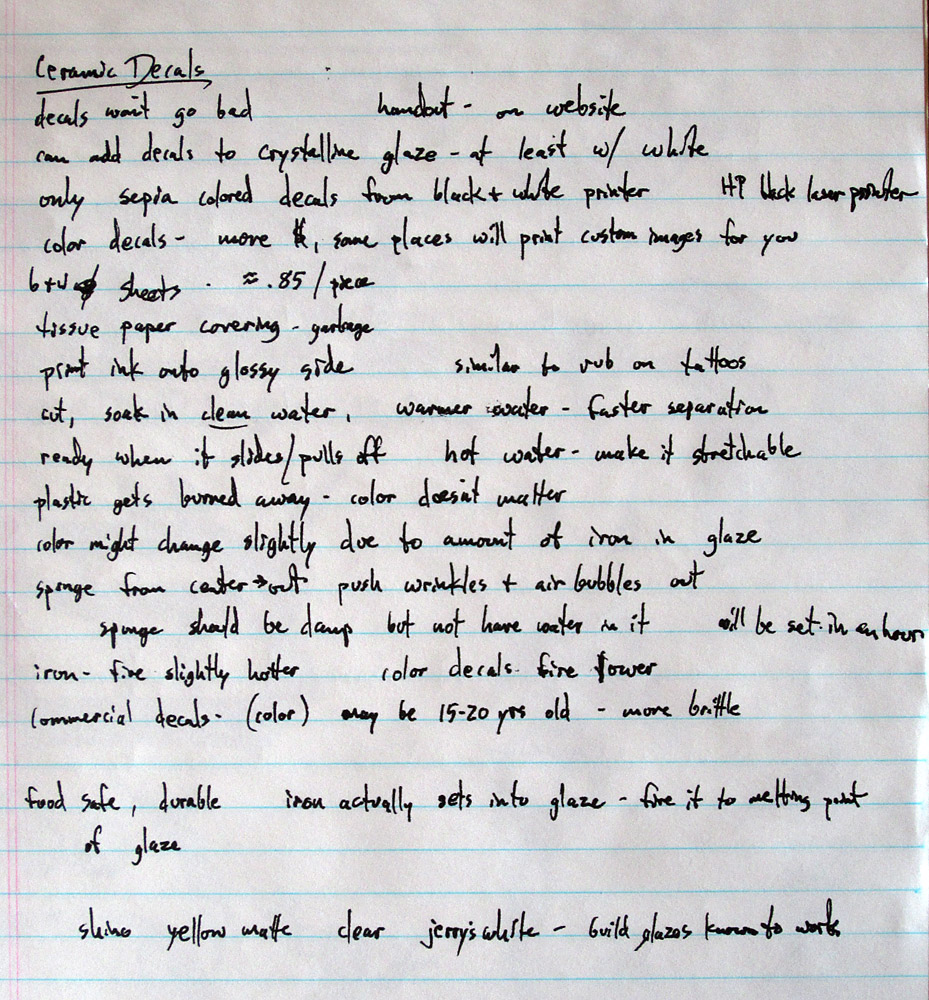 Ceramic Decals
decals won't go bad handout - on website
can add decals to crystalline glaze - at least w/ white
only sepia colored decals from black + white printer HP black laser printer
color decals - more $, some places will print custom images for you
b+w sheets . ≈ .85 / piece
tissue paper covering - garbage
print ink onto glossy side similar to rub on tattoos
cut, soak in clean water, warmer water - faster separation
ready when it slides/pulls off hot water - make it stretchable
plastic gets burned away - color doesn't matter
color might change slightly due to amount of iron in glaze
sponge from center → out push wrinkles + air bubbles out
sponge should be damp but not have water in it will be set in an hour
iron - fire slightly hotter color decals fire lower
commercial decals - (color) may be 15-20 yrs old - more brittle
food safe, durable iron actually sets into glaze - fire it to melting point
of glaze
shino yellow matte clear jerry's white - guild glazes known to work